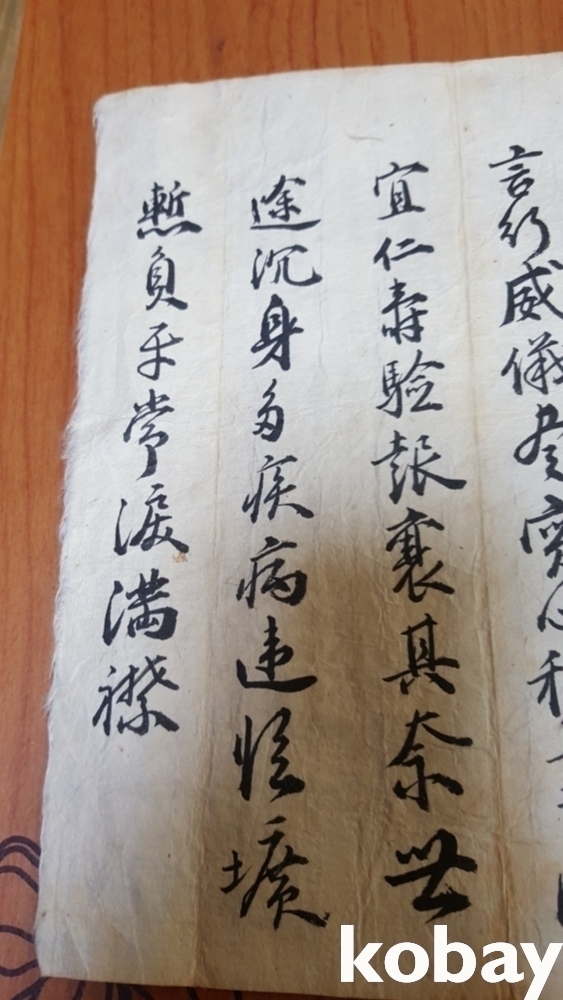 言行威儀
宜仁壽驗報其奈世
途沉身多疾病違臨壙
慙負平常淚滿襟
kobay